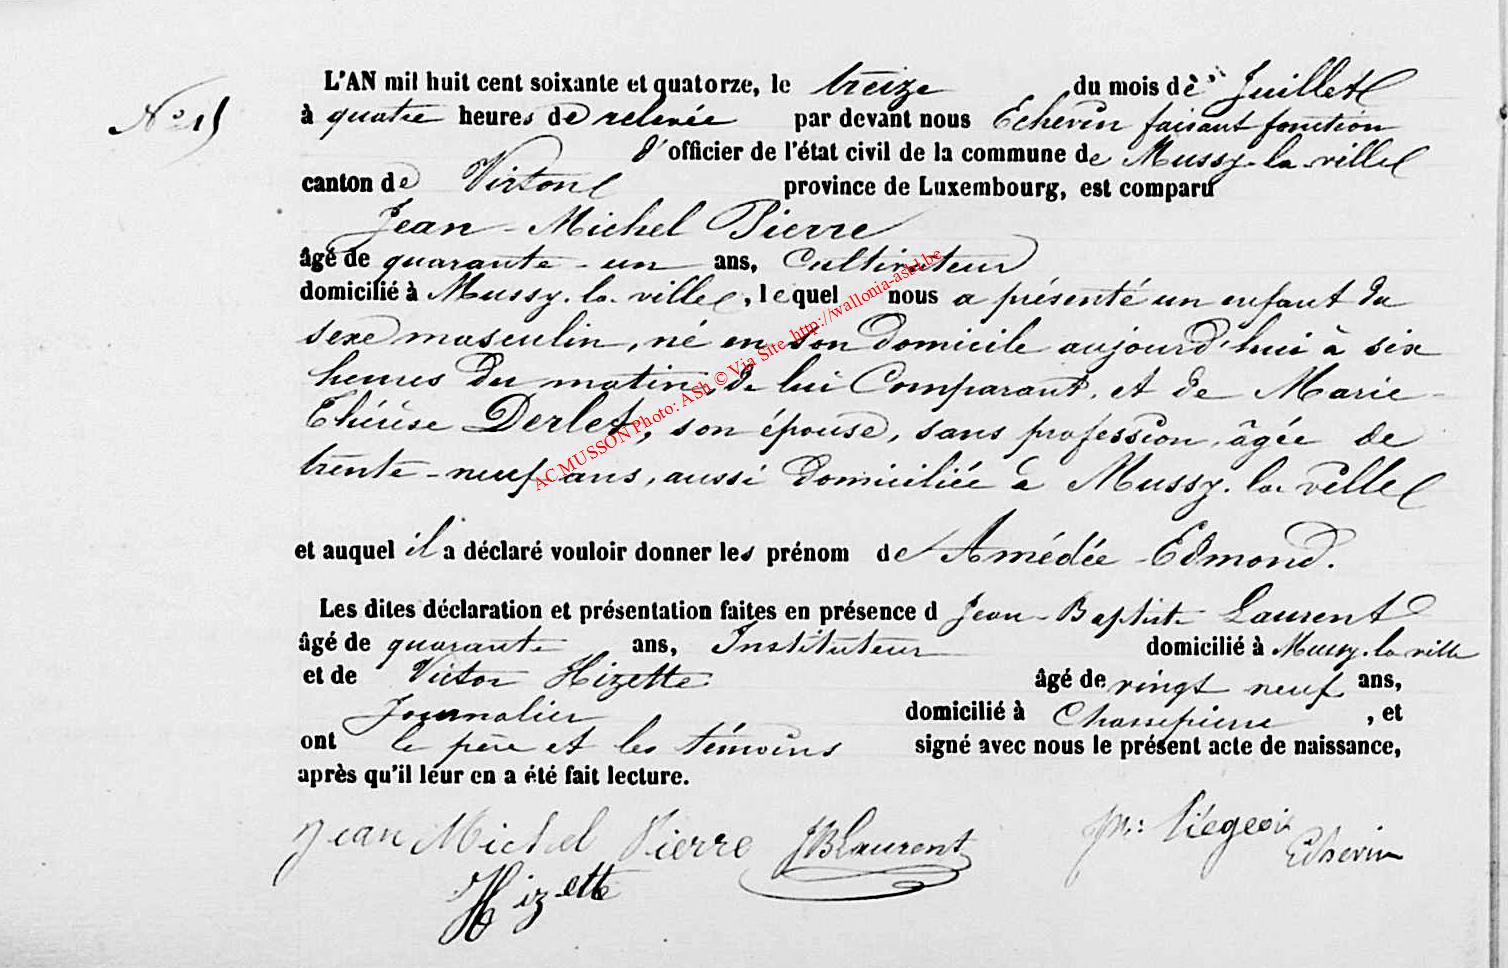 L'AN mil huit cent soixante et quatorze, le treize du mois de Juillet
No 15
à quatre heures de relevée par devant nous Echevin faisant fonction
d'officier de l'état civil de la commune de Mussy-la-ville
canton de Virton province de Luxembourg, est comparu
Jean-Michel Pierre
âgé de quarante-un ans, Cultivateur
domicilié à Mussy-la-ville, lequel nous a présenté un enfant du
sexe masculin, né en son domicile aujourd'hui à six
heures du matin, de lui Comparant, et de Marie-
Thérèse Derlet, son épouse, sans profession, âgée de
trente-neuf ans, aussi domiciliée à Mussy-la-ville
et auquel il a déclaré vouloir donner les prénom de Amédée-Edmond.
Les dites déclaration et présentation faites en présence d Jean-Baptiste Laurent
âgé de quarante ans, Instituteur domicilié à Mussy-la-ville
et de Victor Hizette âgé de vingt neuf ans,
Journalier domicilié à Chassepierre, et
ont le père et les témoins signé avec nous le présent acte de naissance,
après qu'il leur en a été fait lecture.
Jean Michel Pierre JBLaurent Liégeois
Echevin
Hizette
AC MUSSON Photo: ASh © Via Site http://wallonia-asbl.be